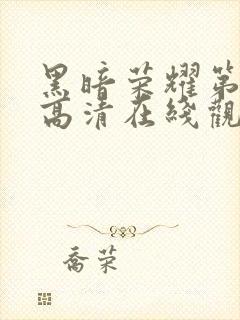 黑暗荣耀第
高清在线觀
喬荣